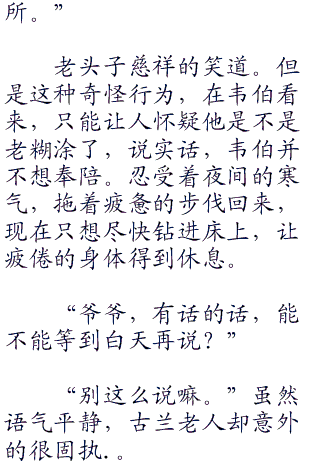 所。”
老头子慈祥的笑道。但
是这种奇怪行为，在韦伯看
来，只能让人怀疑他是不是
老糊涂了，说实话，韦伯并
不想奉陪。忍受着夜间的寒
气，拖着疲惫的步伐回来，
现在只想尽快钻进床上，让
疲倦的身体得到休息。
“爷爷，有话的话，能
不能等到白天再说？”
“别这么说嘛。”虽然
语气平静，古兰老人却意外
的很固执.。